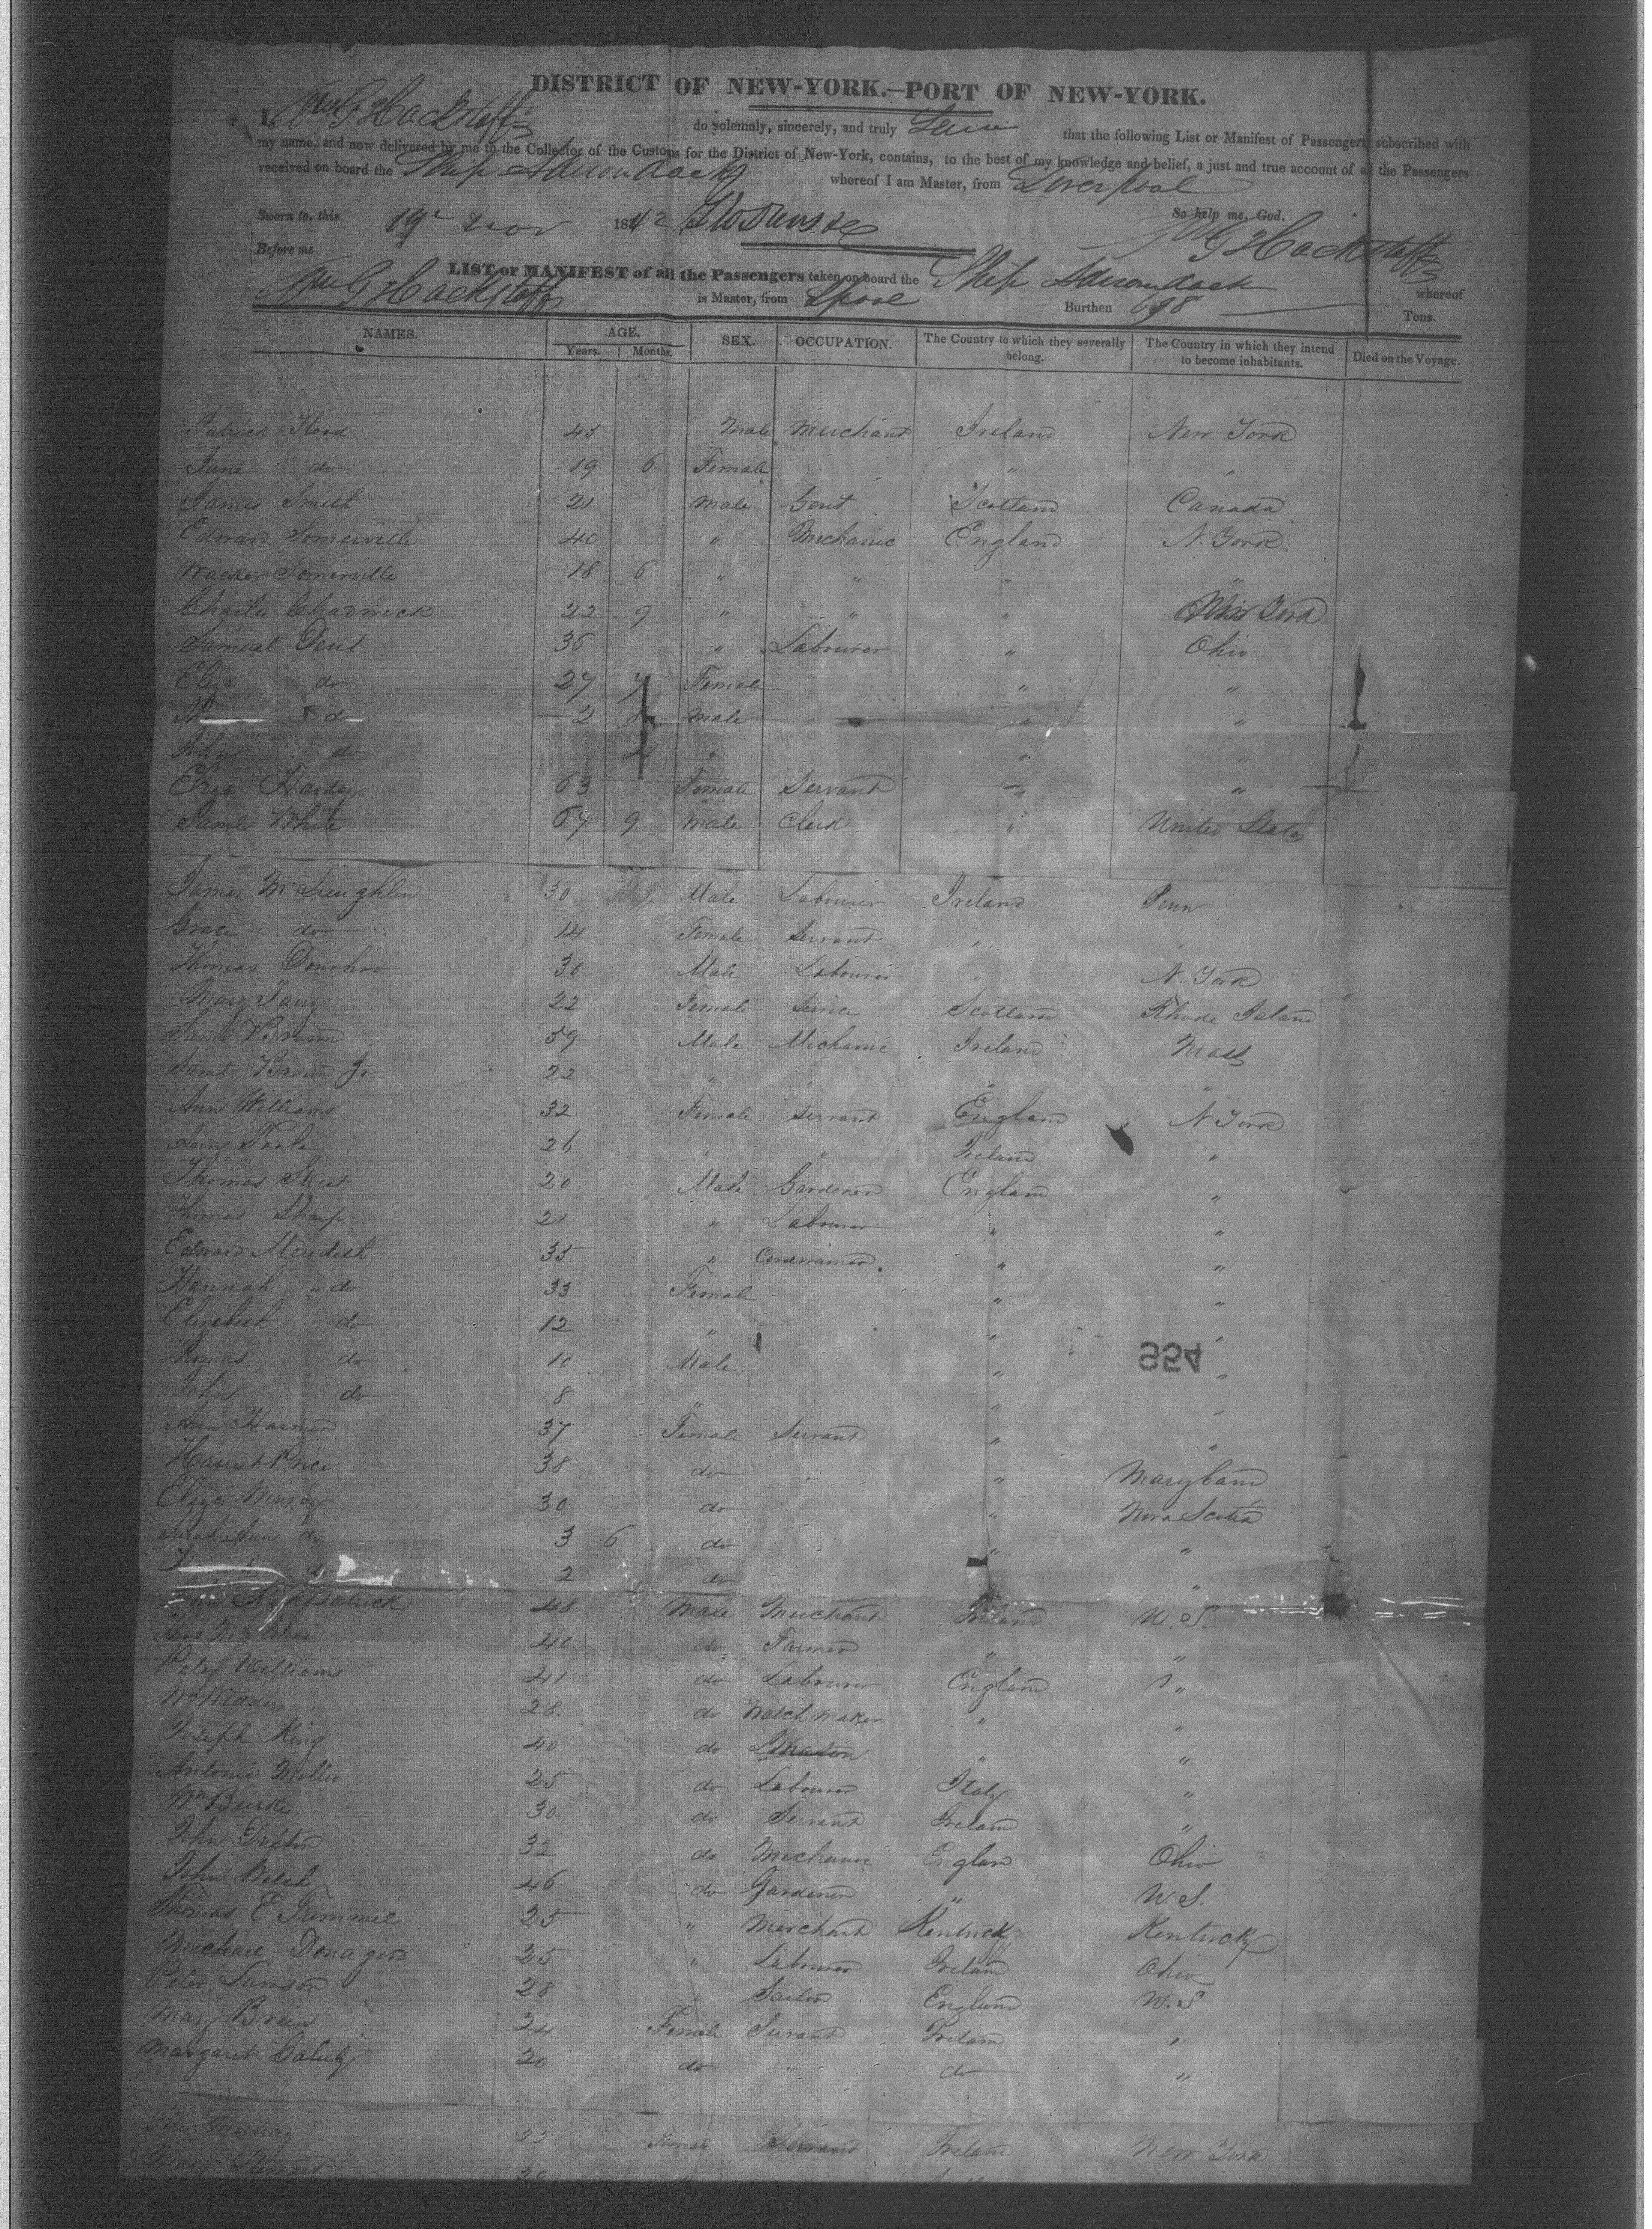 DISTRICT OF NEW-YORK.—PORT OF NEW-YORK.
I, Wm G Hackstaff do solemnly, sincerely, and truly that the following List or Manifest of Passengers subscribed with
my name, and now delivered by me to the Collector of the Customs for the District of New-York, contains, to the best of my knowledge and belief, a just and true account of all the Passengers
received on board the Ship Adirondack whereof I am Master, from Liverpool
Sworn to, this 19 Nov 1842 So help me, God.
Before me Wm G Hackstaff
LIST or MANIFEST of all the Passengers taken on board the Ship Adirondack whereof
Wm G Hackstaff is Master, from Lpool Burthen 698 Tons.
NAMES. AGE. Years. Months. SEX. OCCUPATION. The Country to which they severally belong. The Country in which they intend to become inhabitants. Died on the Voyage.
Patrick 45 Male Merchant Ireland New York
Jane do 19 6 Female " "
James Smith 21 Male Gent Scotland Canada
Edward Somerville 40 " Mechanic England N. York
Walker Somerville 18 6 " " " "
Charles Chadwick 22 9 " " " New York
Samuel Dent 36 " Labourer " Ohio
Eliza do 27 7 Female " "
do 2 Male " "
John do " " "
Eliza Hardey 63 Female Servant " "
Saml White 67 9 Male Clerk " United States
James McLaughlin 30 Male Labourer Ireland Penn
Grace do 14 Female Servant " "
Thomas Donohoo 30 Male Labourer " N. York
Mary 22 Female Scotland Rhode Island
Saml Brown 59 Male Mechanic Ireland Mass
Saml Brown Jr 22 " " " "
Ann Williams 32 Female Servant England N. York
Ann 26 " " Ireland "
Thomas 20 Male Gardener England "
Thomas Sharp 21 " Labourer " "
Edward Meredith 35 " Cordwainer " "
Hannah " do 33 Female " "
Elizabeth do 12 " " "
Thomas do 10 Male " "
John do 8 " " "
954
Ann Harmer 37 Female Servant " "
Harriet Price 38 do " " Maryland
Eliza Murray 30 do " Nova Scotia
Sarah Ann do 3 6 do " "
2 do "
KirkPatrick 48 Male Merchant Ireland U. S.
Thos 40 do Farmer " "
Peter Williams 41 do Labourer England "
Wm 28 do Watch maker " "
Joseph King 40 do Mason " "
Antonio 25 do Labourer Italy "
Wm Burke 30 do Servant Ireland "
John 32 do Mechanic England Ohio
John Welsh 46 do Gardener " U. S.
Thomas E Trimmel 25 " Merchant Kentucky Kentucky
Michael Donagin 25 " Labourer Ireland Ohio
Peter Lawson 28 " Sailor England U. S.
Mary Breen 24 Female Servant Ireland "
Margaret 20 do " do "
Murray 22 Female Servant Ireland New York
Mary Stewart